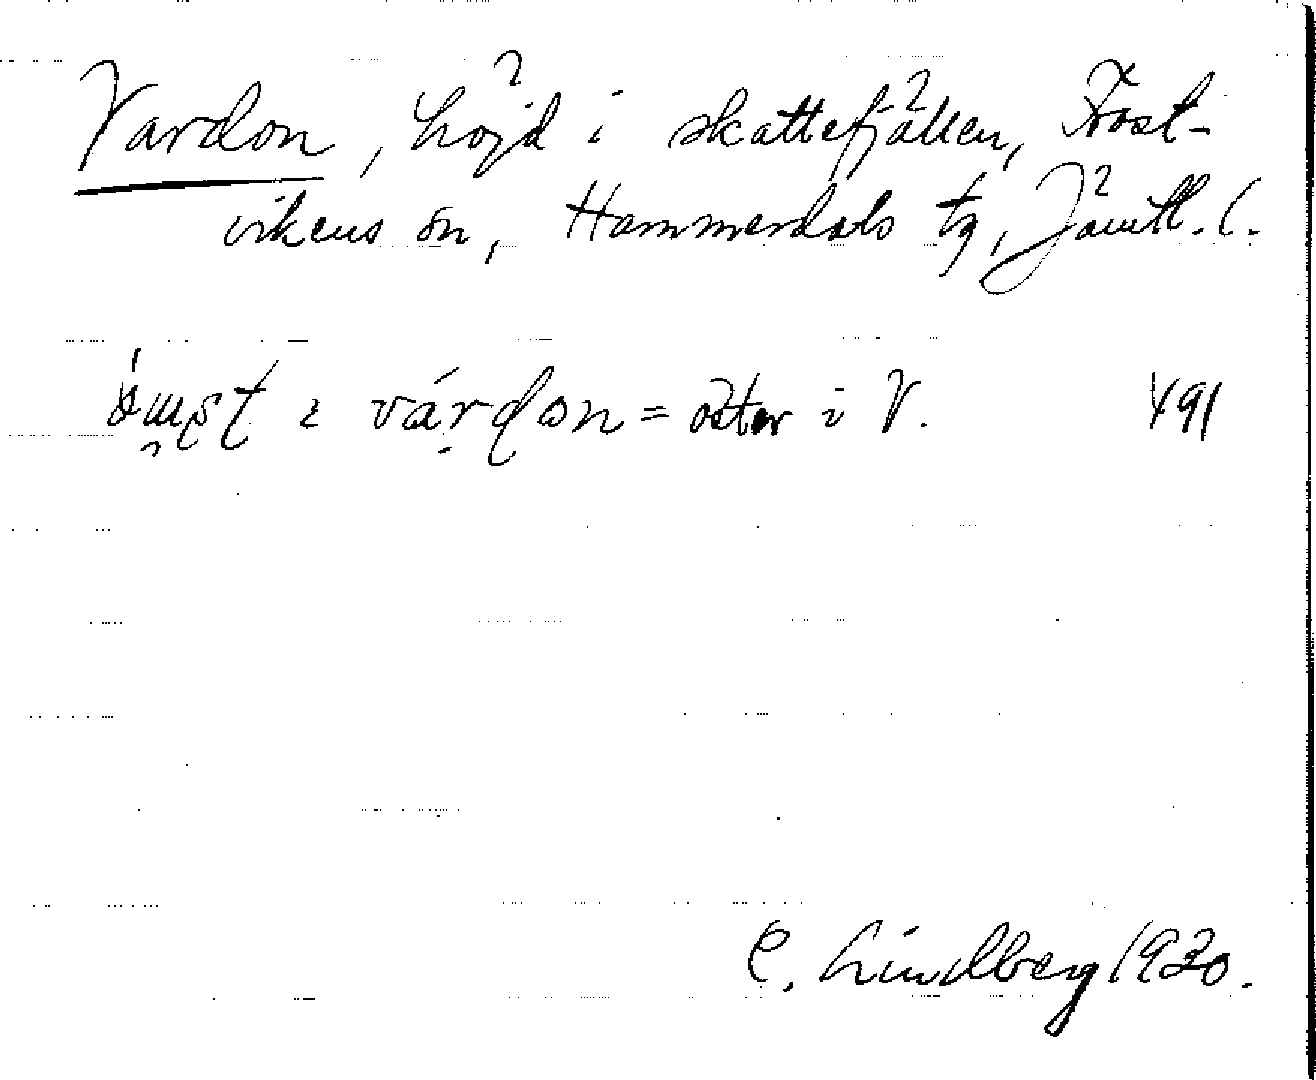 Vardon, höjd i skattefjällen, Frost-
vikens sn, Hammerdals tg, Jämtl. l.
várdon = öster i V. 491
C. Lindberg 1930.